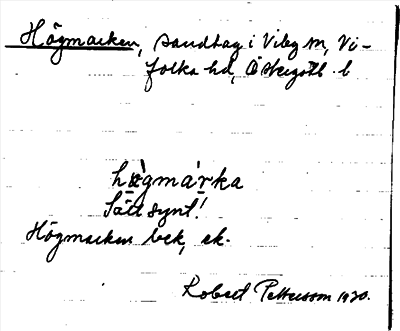 Högmarken, sandtag i Viby sn, Vi-
folka hd, Östergötl. l.
hø̀gmár̥ka
Sält synl!
Högmarken bek, ek.
Robert Pettersson 1930.